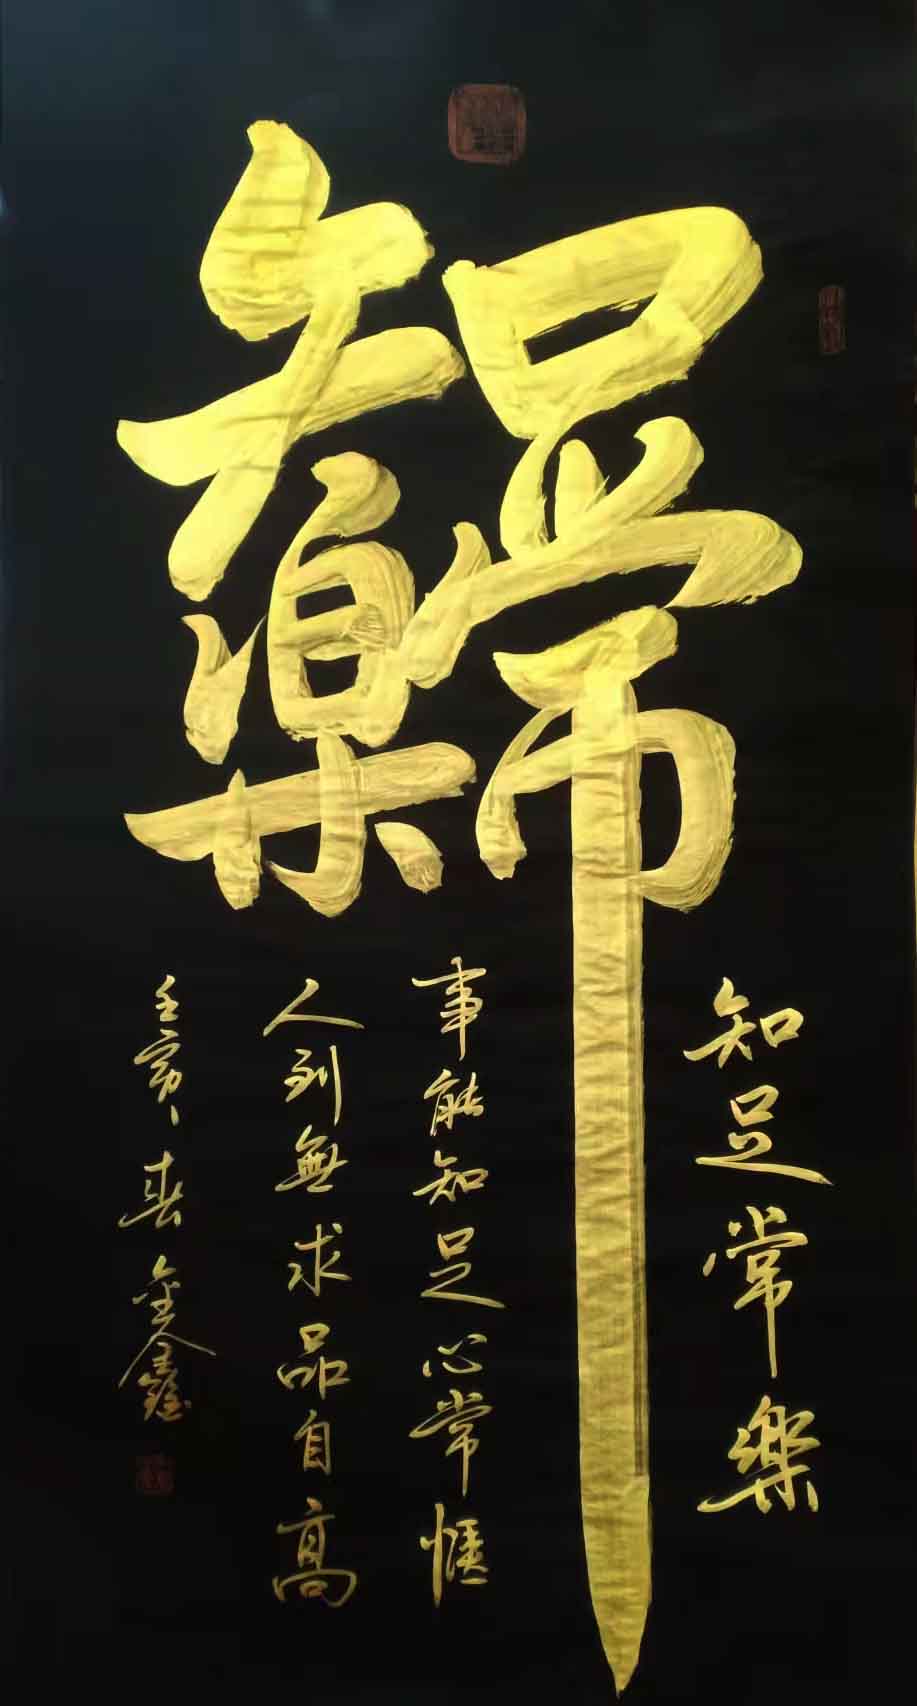 知足常樂
知足常樂
事能知足心常惬
人到無求品自高
壬寅春金鑫